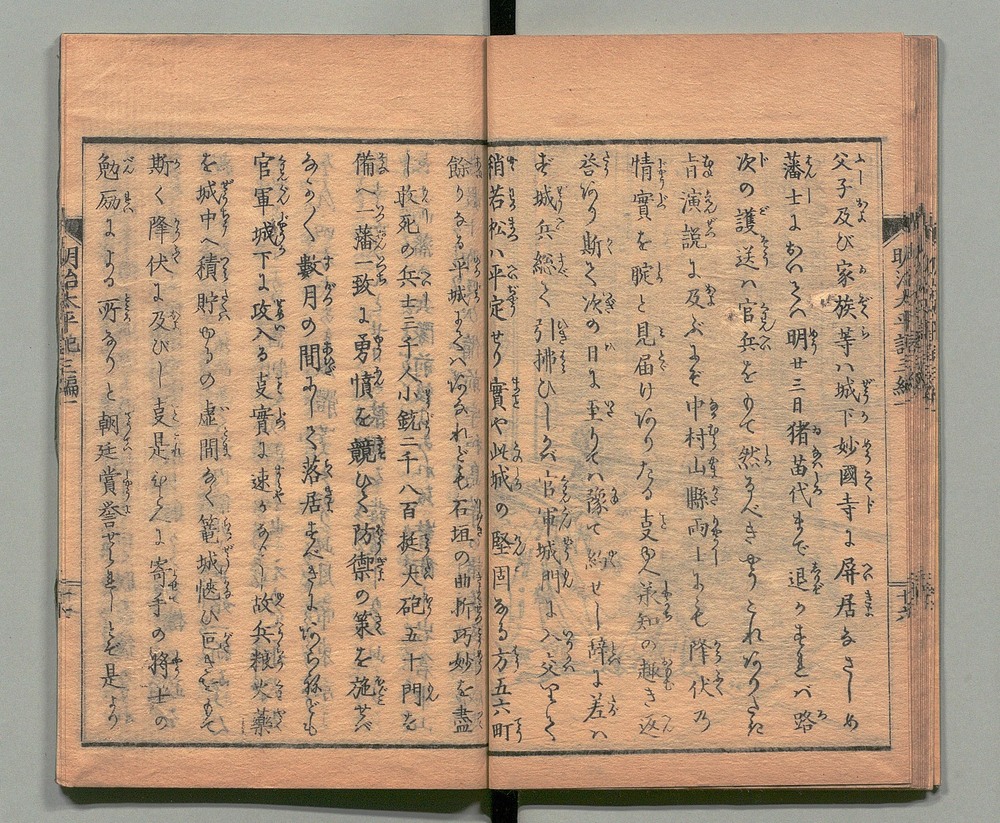 父子及び家族等ハ城下妙國寺に屏居なさしめ
藩士においてハ明廿三日猪苗代まで退かすれバ路
次の護送ハ官兵をもて然るべきやうこれありたき
旨演説に及ぶにぞ中村山縣両士にも降伏乃
情實を聢と見届けありたる支ゆゑ承知の趣き返
答あり斯て次の日に至りてハ豫て約せし辞に差ハ
ず城兵総て引拂ひしかバ官軍城門に入交りて
稍若松ハ平定せり實や此城の堅固なる方五六町
餘りなる平城にてハあなれども石垣の曲折巧妙を盡
し敢死の兵士三千人小銃二千八百挺大砲五十門を
備へ一藩一致に勇憤を競ひて防禦の策を施せバ
なか〱數月の間にして落居すべきにあらねども
官軍城下に攻入る支實に速かなりし故兵粮火藥
を城中へ積貯ゆるの虚間なく篭城
斯く降伏に及びし支是ひとへに寄手の將士の
勉励による所なりと朝廷賞誉せられしとぞ是より
明治太平記三編一